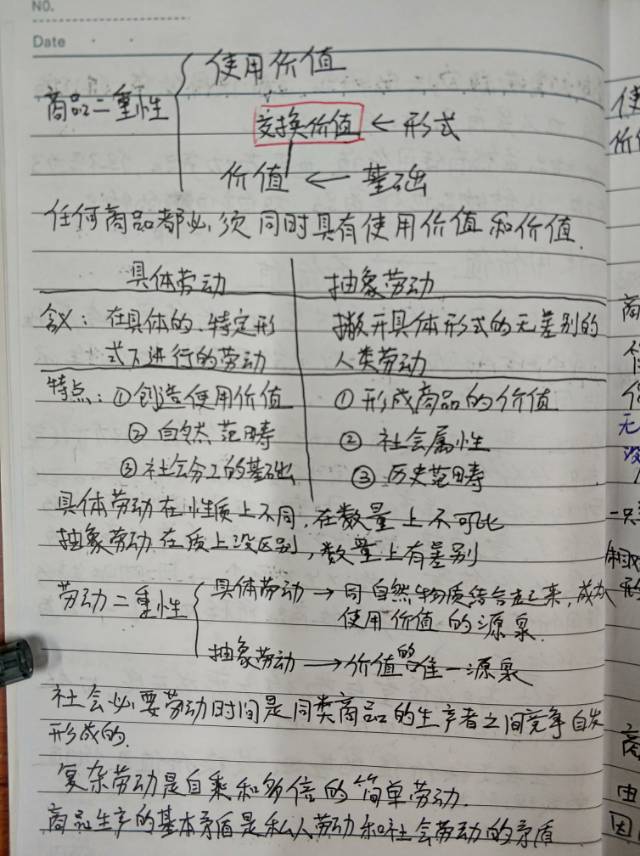 NO.
Date
使用价值
商品二重性
交换价值 ← 形式
价值 ← 基础
任何商品都必须同时具有使用价值和价值.
具体劳动 抽象劳动
含义: 在具体的、特定形 撇开具体形式的无差别的
式下进行的劳动 人类劳动
特点: ①创造使用价值 ①形成商品的价值
②自然范畴 ②社会属性
③社会分工的基础 ③历史范畴
具体劳动在性质上不同,在数量上不可比
抽象劳动在质上没区别,数量上有差别
劳动二重性
具体劳动 → 同自然物质结合起来,成为
使用价值的源泉.
抽象劳动 → 价值的唯一源泉
社会必要劳动时间是同类商品的生产者之间竞争自发
形成的.
复杂劳动是自乘和多倍的简单劳动.
商品生产的基本矛盾是私人劳动和社会劳动的矛盾
使
价
商
无
没
二只
形
商
由
因